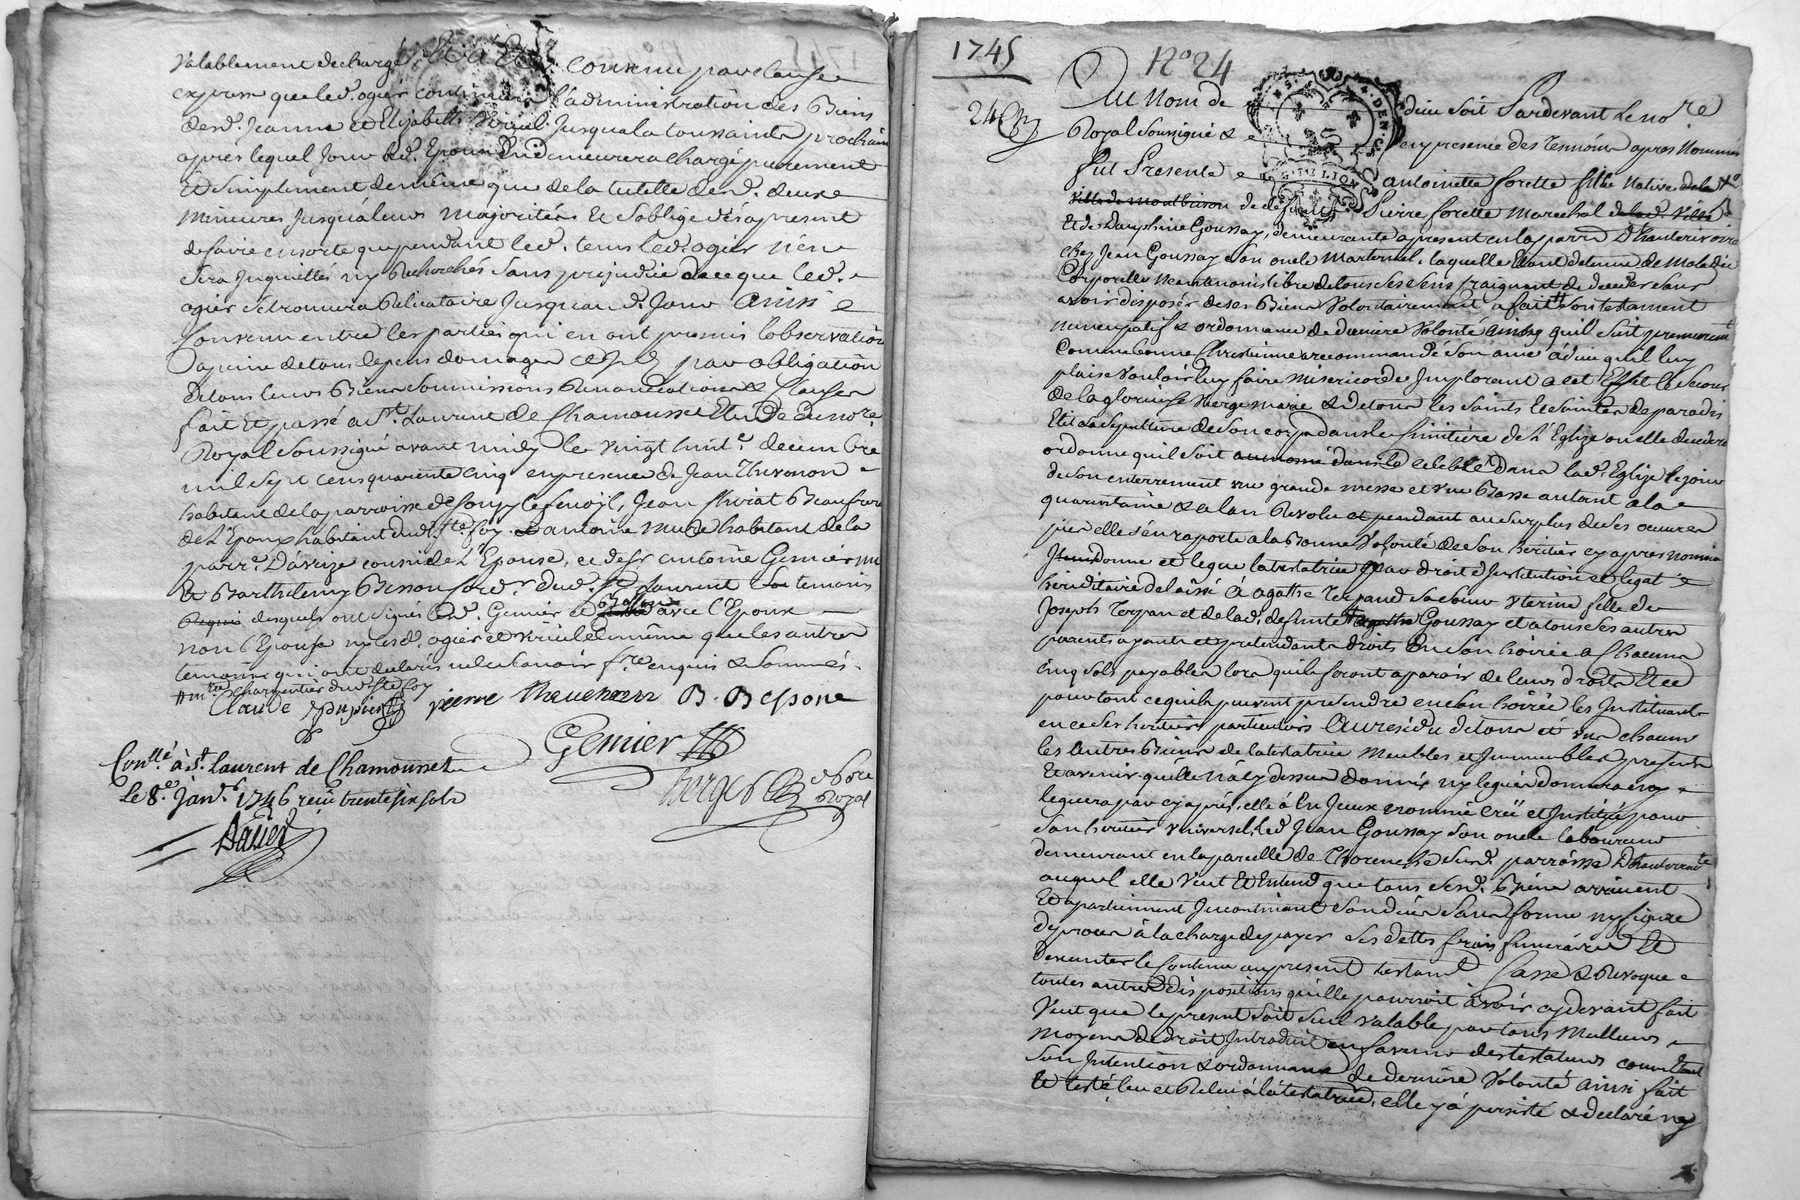 valablement dechargé, Et a Eté convenu par clause
expresse que led. ogier continuera l'administration des Biens
desd. Jeanne et Elizabette Viriel jusqua la toussaints prochain
apres lequel Jour led. Epoux En demeurera chargé purement
Et simplement de même que de la tutelle desd. deux
mineures Jusqu'a leurs majorités Et s'oblige dés apresent
de faire en sorte que pendant led. tems led. ogier n'en
sera Inquietté ny Recherché sans prejudice de ce que led.
ogier se trouvera Reliquataire Jusqu'au d. Jour ainsi
Convenu entre les parties qui en ont promis l'observation
a peine de tous depens domages par obligation
de tous leurs Biens soumissions Renonciations & Clauses
fait Et passé a St. Laurent de Chamousset Etude du no.re
Royal soussigné avant midy le vingt huit decembre
mil sept cens quarente cinq en presence de Jean Thevenon
habitant de la parroisse de Souzy Jean Beaufrere
de L'Epoux habitant dud. ste foy antoine habitant de la
parr. D'aveize cousin de L'Epouse, antoine Gemier
Et Barthelemy Besson dud. St Laurent temoins
Requis desquels ont signés led. Gemier et Besson avec L'Epoux
non l'Epouse ny lesd. ogier et viriel de même que les autres
temoins qui ont declaré ne le savoir f.re enquis & sommés.
charpentier dud. ste foy
Claude pierre thevenon B. Besson
Gemier
Conllé à St. Laurent de Chamousset
Le 8.e Janv. 1746 reçu trente six sols
no.re Royal
1745
N° 24
24
Au Nom de dieu soit Pardevant le no.re
Royal Soussigné & en presence des Temoins apres Nommés
fut Presente antoinette forette fille Native de la
ville de montbrison de defunt Pierre forette marechal de lad. ville
Et de Dauphine Goussay, demeurante apresent en la parr. D'hauterivoire
chez Jean Goussay son oncle marternel, laquelle Etant detenue de Maladie
Corporelle Neantmoins libre de tous ses sens craignant de deceder sans
avoir disposés de ses Biens Volontairement a fait son testament
nuncupatif & ordonnance de derniere Volonté ainsy quil suit premierement
Comme bonne Christienne a recommandé Son ame à dieu quil luy
plaise vouloir luy faire misericorde Jmplorant a cet Effet le secours
de la glorieuse vierge marie & de tous les saints Et saintes de paradis
Elit sa sepulture de son corps dans le simitiere de L'Eglise ou elle decedera
ordonne quil soit celebré dans lad. Eglise le jour
de son enterrement une grande messe et une Basse autant a la
quarantaine & a l'an Revolu et pendant au surplus de ses oeuvres
pies elle s'en raporte a la Bonne Volonté de son heritier cy apres nommé
Item donne et legue la testatrice par droit d'Institution et legat
hereditaire delaissé à agathe Terpand sa soeur uterine fille de
Joseph Terpan et de lad. defunte Goussay et a tous ses autres
parents ayants et pretendants droits En son hoirie a Chacun
cinq sols payables lors quils feront aparoir de leurs droits Et ce
pour tout ce quils puevent pretendre en son hoirie les Instituant
en ce ses heritiers particuliers Au residu de tous et un chacun
les autres Biens de la testatrice meubles et Immeubles presents
Et avenir quelle n'a cy dessus donnés ny legués donnera ny
leguera par cy aprés, elle à En Jceux nommé creé et Institué pour
son heritier universel led. Jean Goussay son oncle laboureur
demeurant en la parcelle de sud. parroisse D'hauterivoire
auquel elle veut Et Entend que tous sesd. Biens arrivent
Et apartiennent Jncontinant Son dècés sans forme ny figure
de procès à la charge de payer ses dettes frais funeraires Et
D'executer le Contenu au present testamt. Casse & Revoque
toutes autres dispositions quelle pourroit avoir cy devant fait
Veut que le present soit seul valable par tous meilleurs
moyens de droit Introduit en faveur des testateurs
son Intention & ordonnance de derniere Volonté ainsi fait
Et testé, leu et Releu à la testatrice, elle y à persisté & declaré ny